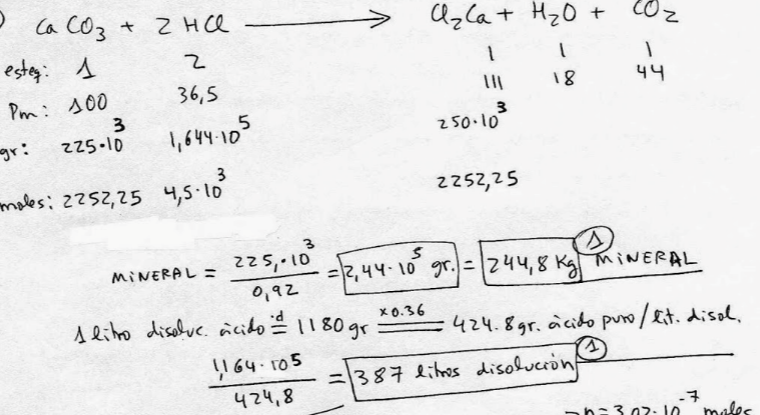 CaCO₃ + 2 HCl ⟶ Cl₂Ca + H₂O + CO₂
esteq: 1 2 1 1 1
Pm: 100 36,5 111 18 44
gr: 225·10³ 1,644·10⁵ 250·10³
moles: 2252,25 4,5·10³ 2252,25
MINERAL = 225,·10³ / 0,92 = 2,44·10⁵ gr. = 244,8 Kg MINERAL ①
1 litro disoluc. ácido =·d 1180 gr =x0.36 424.8 gr. ácido puro/lit. disol.
1,164·10⁵ / 424,8 = 387 litros disolución ①
n = 3,02·10⁻⁷ moles